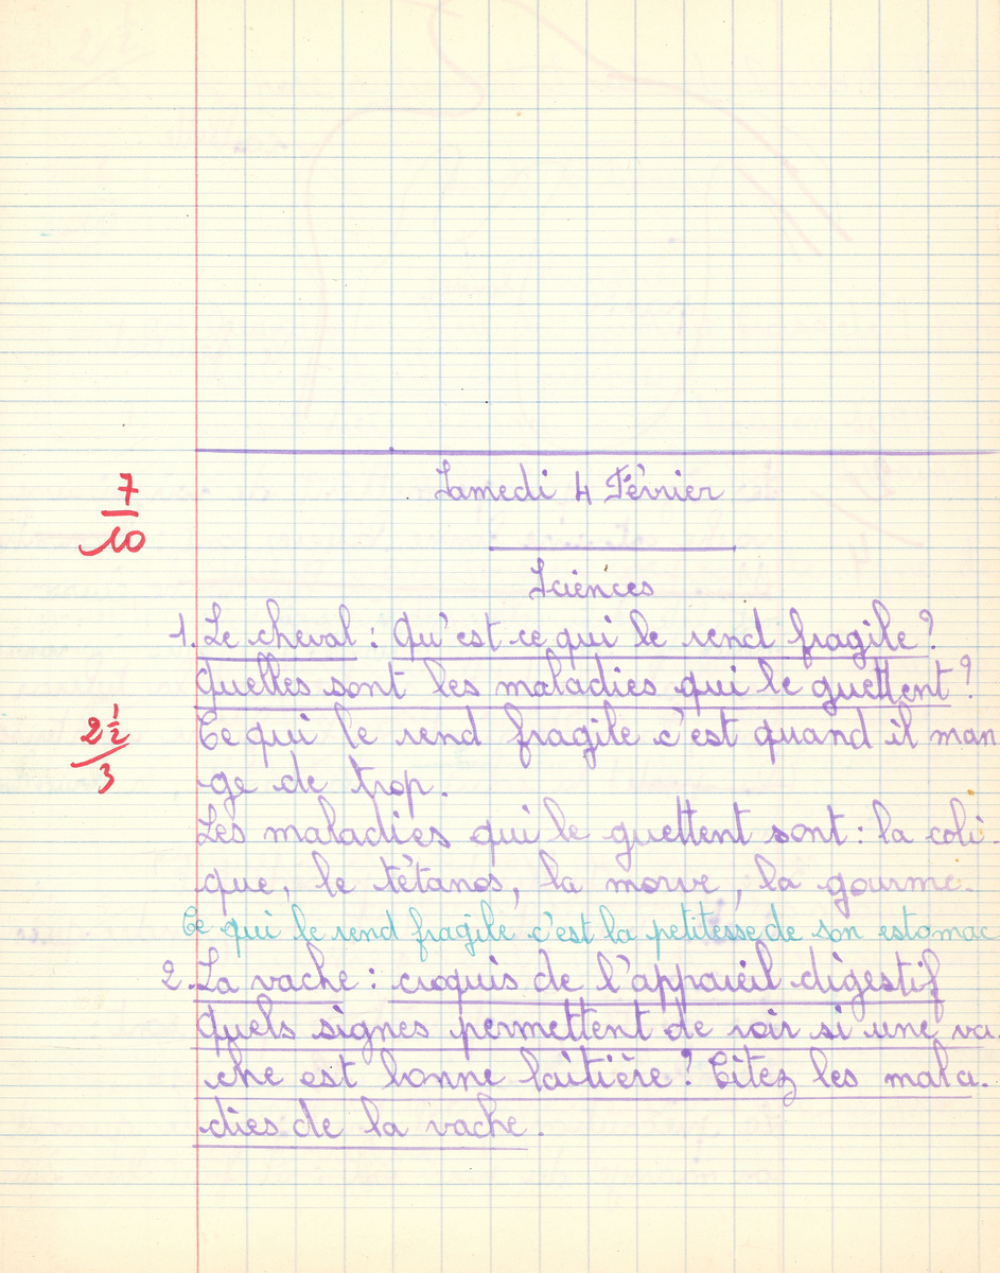 Samedi 4 Février
7
10
Sciences
1. Le cheval : Qu'est ce qui le rend fragile ?
Quelles sont les maladies qui le guettent ?
2 1/2
3
Ce qui le rend fragile c'est quand il man
ge de trop.
Les maladies qui le guettent sont : la coli-
que, le tétanos, la morve, la gourme.
Ce qui le rend fragile c'est la petitesse de son estomac
2. La vache : croquis de l'appareil digestif
Quels signes permettent de voir si une va-
che est bonne laitière ? Citez les mala-
dies de la vache.